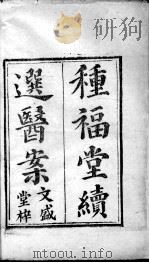 種福堂續
選醫案
文盛
堂梓
mtoou.info